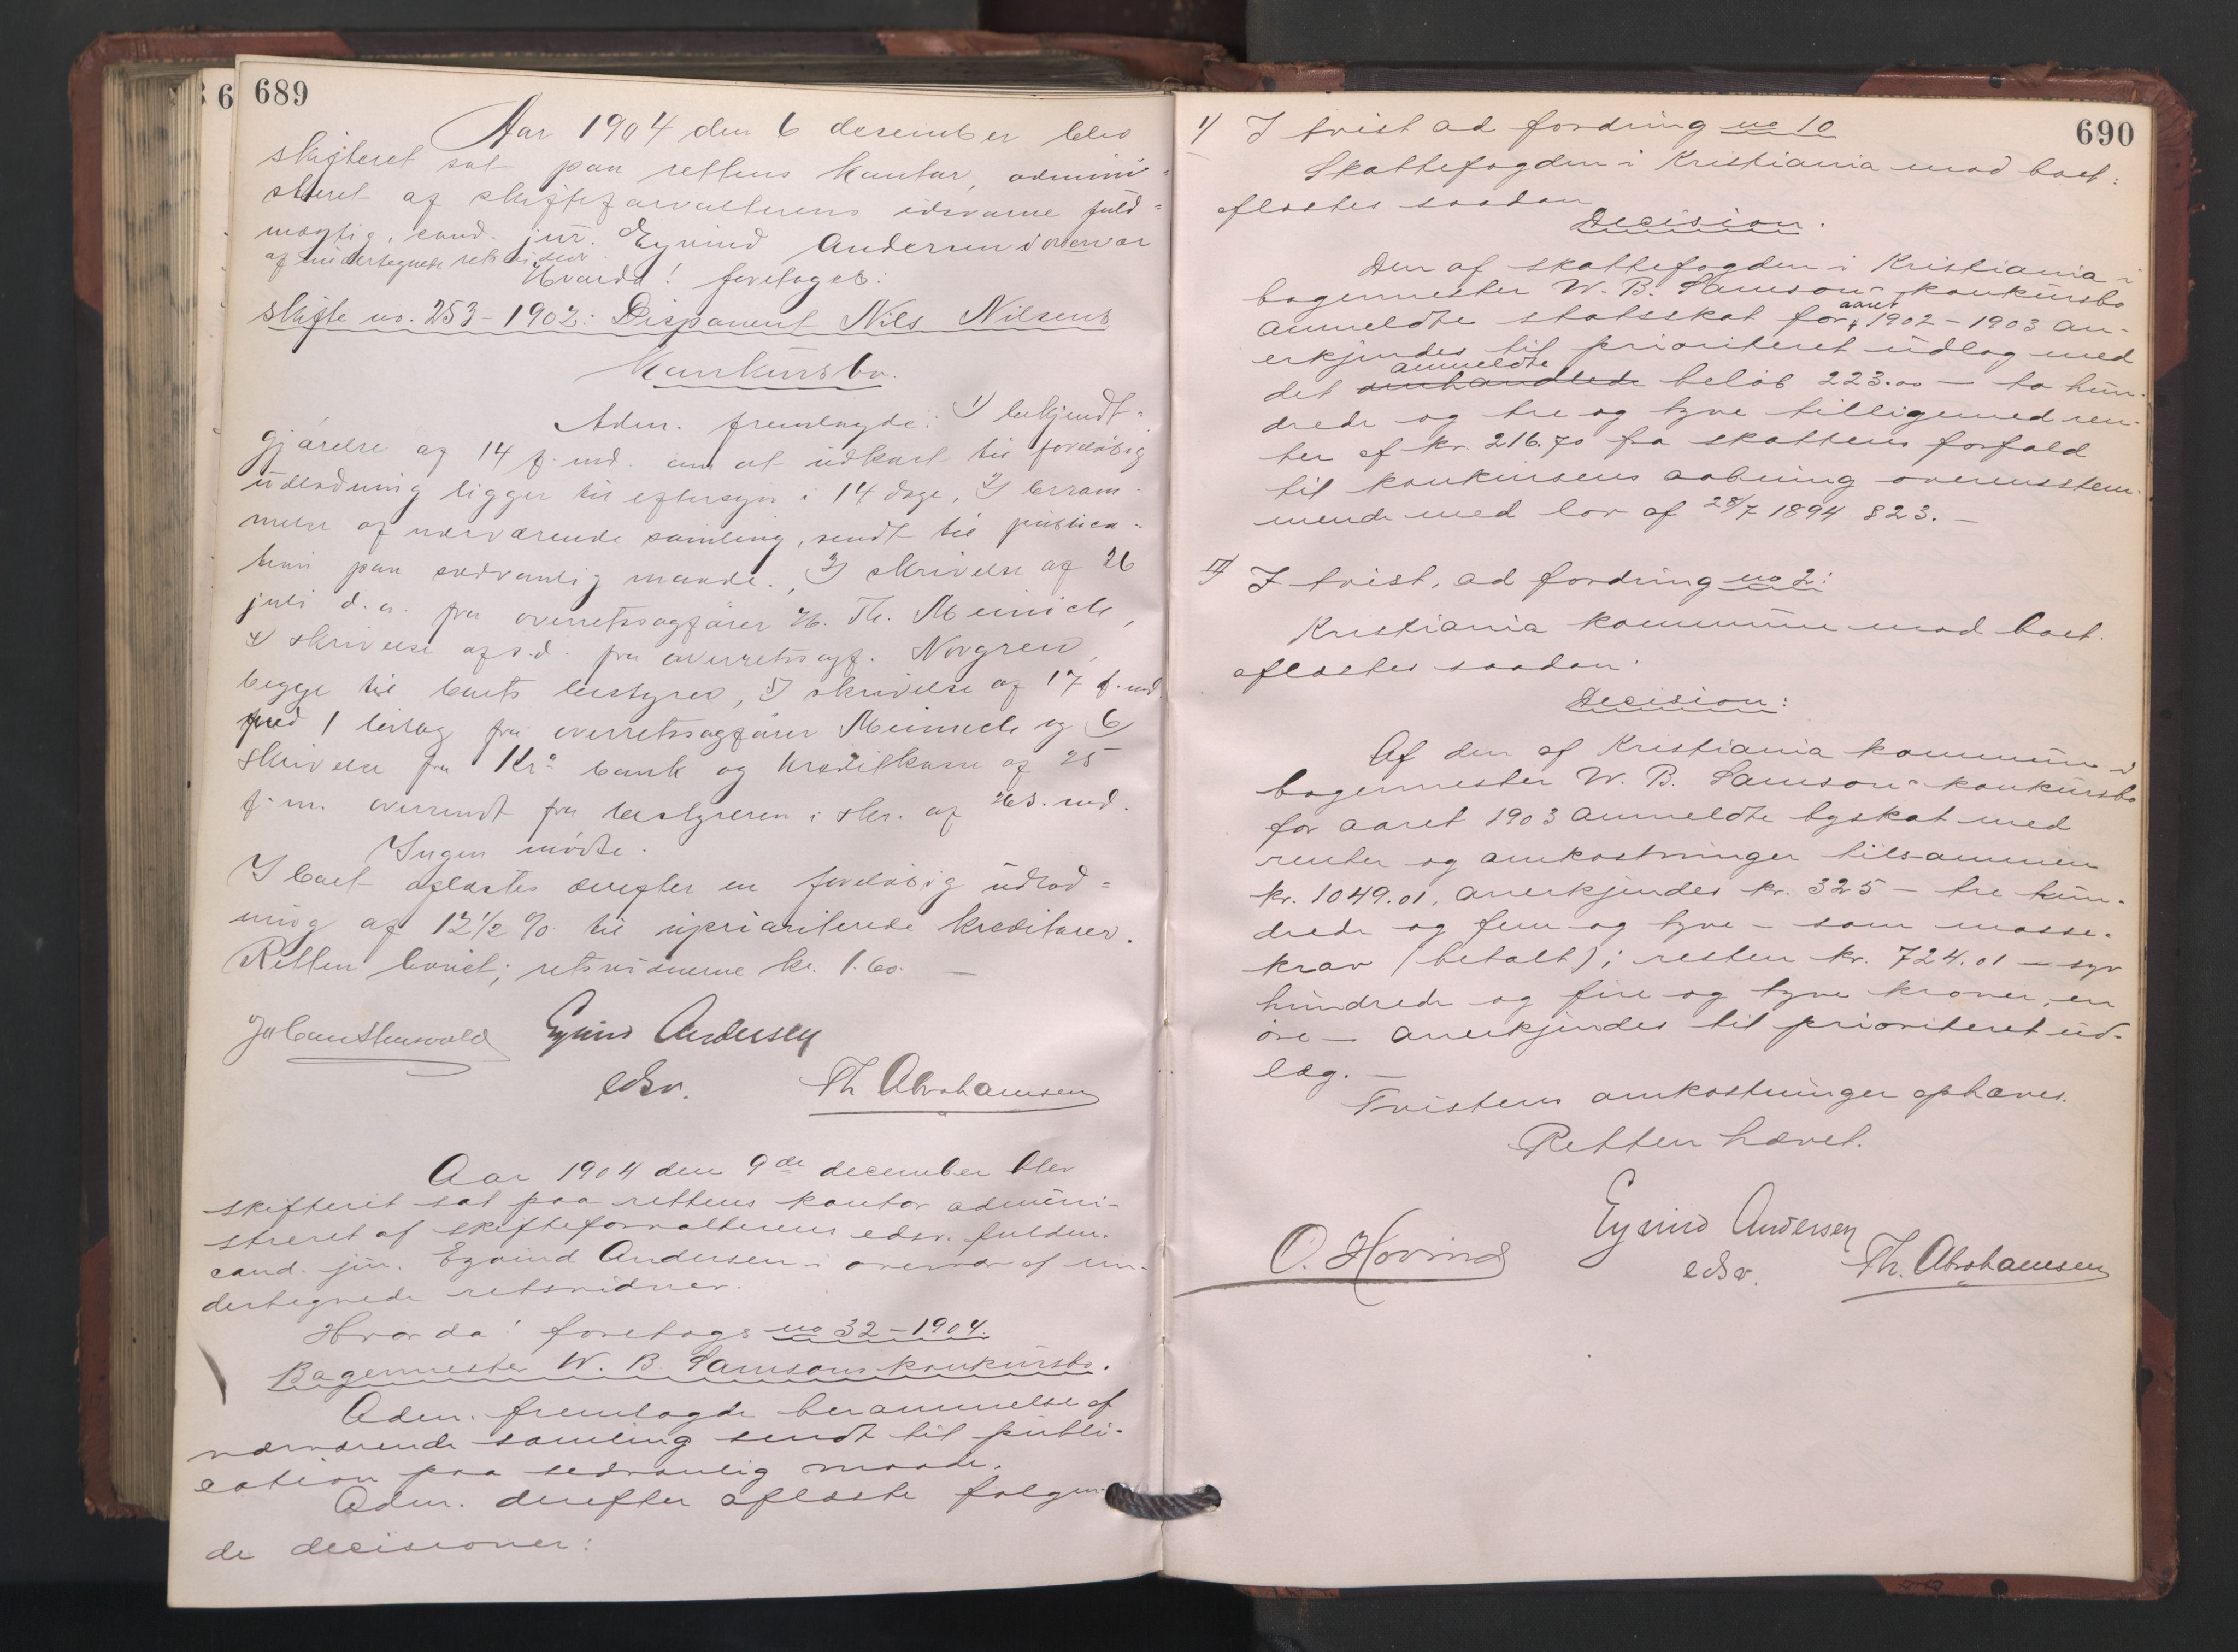 689
Aar 1904 den 6 desember blev
skifteret sat paa rettens kontor, admini-
streret af skifteforvalterens edsvorne fuld-
mægtig, cand. jur. Eyvind Andersen i overvær
af undertegnede retsvidner.
Hvorda! foretoges:
Skifte no. 253-1902: Disponent Nils Nilsens
Konkursbo.
Adm. fremlagde: 1) bekjendt-
gjörelse af 14 f. md. om at udkast til forelöbig
udlodning ligger til eftersyn i 14 dage, 2) beram-
melse af nærværende samling, sendt til publica-
tion paa sedvanlig maade, 3) skrivelse af 26
juli d. a. fra overretssagförer H. Th. Meinich,
4) skrivelse af s.d. fra overretssagf. Norgren,
begge til boets bestyrer, 5) skrivelse af 17 f. md.
med 1 bilag fra overretssagförer Meinich og 6)
skrivelse fra Kr.a bank og kreditkasse af 25
f. m. oversendt fra bestyreren i skr. af 26 s. md.
Ingen mödte.
I boet aflæstes derefter en forelöbig udlod-
ning af 12 1/2 % til uprioriterede kreditorer.
Retten hævet; retsvidnerne kr. 1.60. —
Eyvind Andersen
edsv.
Th Abrahamsen
Aar 1904 den 9de december blev
skifteret sat paa rettens kontor admini-
streret af skifteforvalterens edsv. fuldm.
cand. jur. Eyvind Andersen i overvær af un-
dertegnede retsvidner.
Hvorda! foretoges no 32-1904.
Bagermester W. B. Samsons konkursbo.
Adm. fremlagde berammelse af
nærværende samling sendt til publi-
cation paa sedvanlig maade.
Adm. derefter aflæste fölgen-
de decisioner:
690
I) I tvist ad fordring no 10
Skattefogden i Kristiania mod boet:
aflæstes saadan
Decision.
Den af skattefogden i Kristiania i
bagermester W. B. Samson's konkursbo
anmeldte statsskat for aaret 1902-1903 an-
erkjendes til prioriteret udlæg med
det omhandlede anmeldte belöb 223.00 — to hun-
drede og tre og tyve tilligemed ren-
ter af kr. 216.70 fra skattens forfald
til konkursens aabning overensstem-
mende med lov af 28/7 1894 § 23. —
II) I tvist, ad fordring no 2:
Kristiania kommune mod boet.
aflæstes saadan
Decision:
Af den af Kristiania kommune i
bagermester W. B. Samson's konkursbo
for aaret 1903 anmeldte byskat med
renter og omkostninger tilsammen
kr. 1049.01, anerkjendes kr. 325 — tre hun-
drede og fem og tyve — som masse-
krav (betalt); resten kr. 724.01 — syv
hundrede og fire og tyve kroner, en
öre — anerkjendes til prioriteret ud-
læg. —
Tvistens omkostninger ophæves.
Retten hævet.
Eyvind Andersen
edsv.
O. Hovind
Th. Abrahamsen